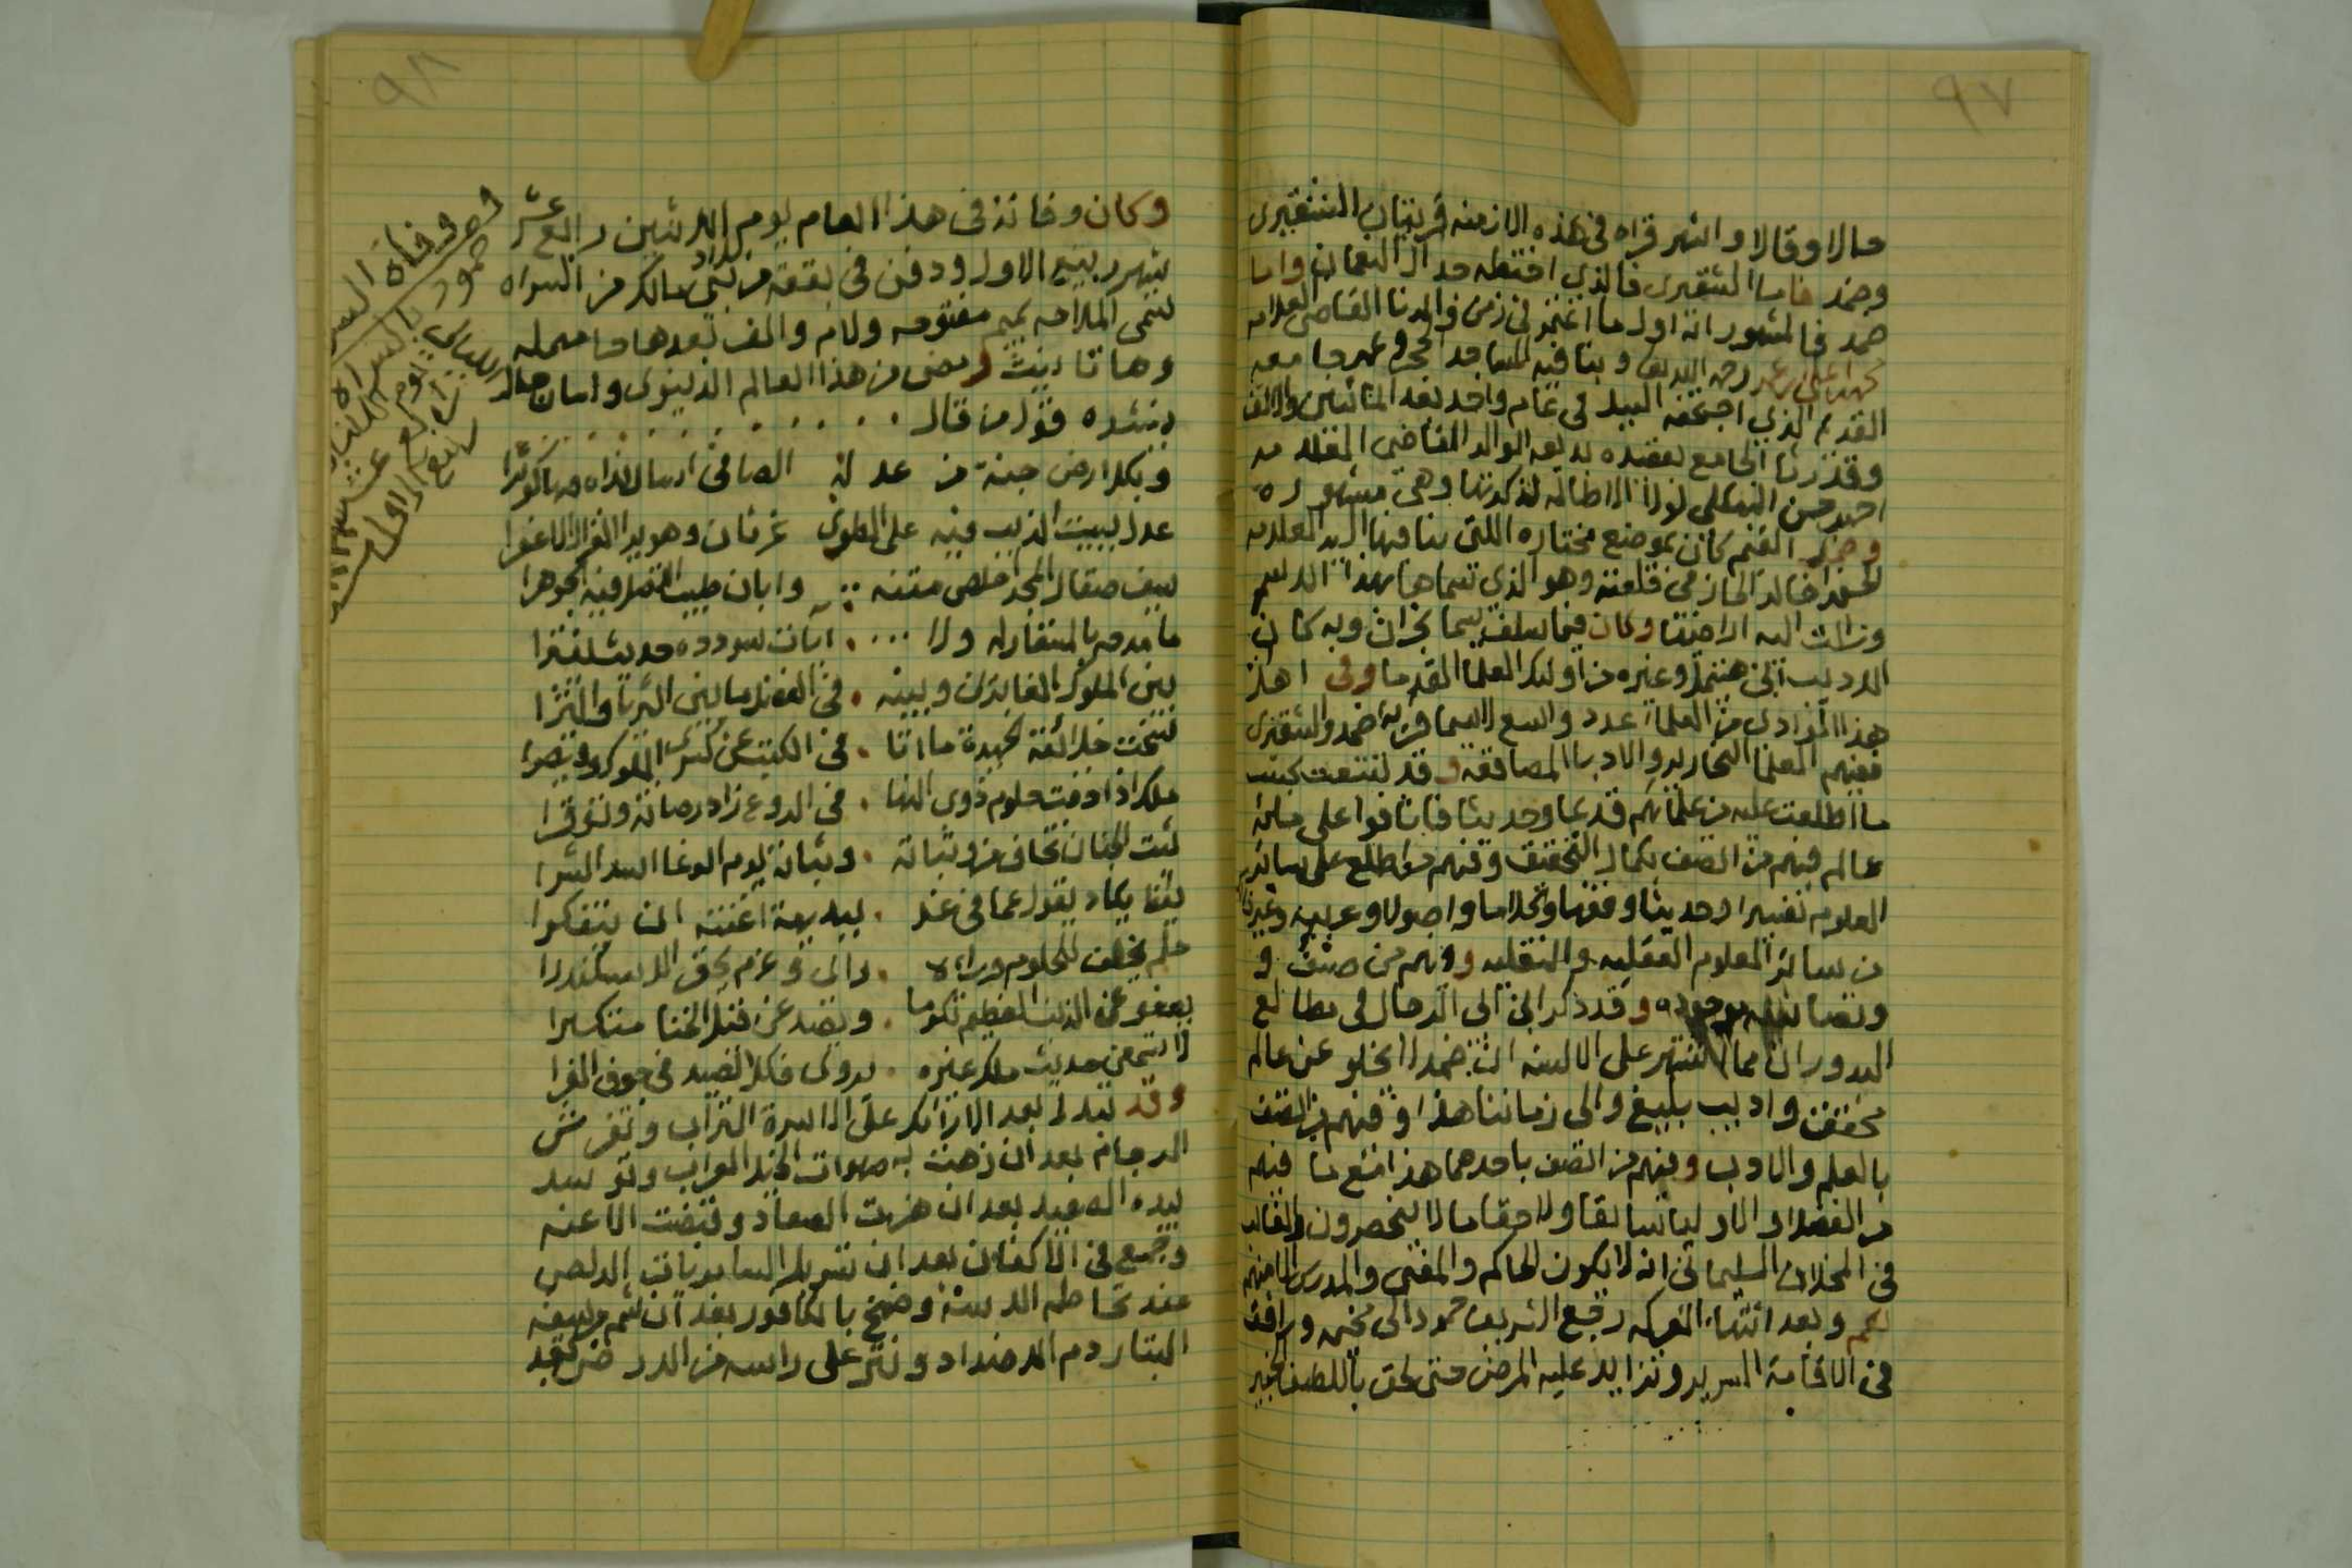 ٩٧
حالا وقالا واشهر قراه في هذه الازمنه قريتان الشقيرى
وضمد فاما الشقيرى فالذي اختطه جد ال النعمان واما
ضمد فالمشهور انه اول ما اغتمر في زمن والدنا القاضي العلامه
رحمه الله وبنا فيه المساجد
القديم الذي اجتحفه السيل في عام واحد بعد المائتين والالف
وقد رثا الجامع بقصيده بديعه الوالد القاضي العلامه
احمد حسن البهكلي لولا الاطاله لذكرتها وهي مشهوره
القديم كان بموضع مختاره اللتي بنا فيها
خالد الحازمي قلعته وهو الذي سماها بهذا الاسم
وكان فيما سلف يسما نجران وبه كان
الاديب ابن هتيمل وغيره من اولئك العلما القدما وفي اهل
هذا الوادي من العلما عدد واسع لاسيما قرية ضمد والشقيرى
ففيهم العلما النحارير والادبا المصاقعه وقد تتبعت بحسب
ما اطلعت عليه من علمائهم قديما وحديثا فانافوا على مائة
عالم فمنهم من اتصف بكمال التحقيق ومنهم من اطلع على سائر
العلوم تفسيرا وحديثا وفقها وكلاما واصولا وعربيه وغيرها
من سائر العلوم العقليه والنقليه ومنهم من صنف و
وتصانيفه موجوده وقد ذكر ابن ابي الرجال في مطالع
البدور ان مما اشتهر على الالسنه ان ضمدا لا يخلو عن عالم
محقق واديب بليغ والى زماننا هذا فمنهم من اتصف
بالعلم والادب ومنهم من اتصف باحدهما هذا مع ما فيهم
من الفضلا والاوليا سابقا ولاحقا ما لا ينحصرون والغالب
في المخلاف السليماني انه لا يكون الحاكم والمفتي والمدرس الا منهم
نعم وبعد انتهاء المعركه رجع الشريف حمود الى مخيمه وراقه
في الاقامة السرير وتزايد عليه المرض حتى لحق باللطيف الخبير
٩٨
وكان وفاته في هذا العام يوم الاثنين رابع عشر
شهر ربيع الاول ودفن في بقعة من بلاد بني مالك من السراه
تسمى الملاحه بميم مفتوحه ولام والف بعدها حا مهمله
وها تانيث ومضى من هذا العالم الدنيوى ولسان حاله
ينشده قول من قال
وبكل ارض جنة من عدله الصافي اسال نداه فيها كوثرا
عدل يبيت الذيب فيه على الطوى غرثان وهو يرا الغزال الاعفرا
سيف صقال المجد اخلص متنه وابان طيب الاصل فيه الجوهرا
ما مدحه بالمستعار له ولا ايات سودده حديث يفترا
بين الملوك الغابرين وبينه في الفضل ما بين الثريا والثرا
نسخت خلائقه الحميدة ما اتا في الكتب عن كسرى الملوك وقيصرا
ملك اذا خفت حلوم ذوى النها في الروع زاد رصانة وتوقرا
ثبت الجنان تخاف من وثباته وثباته يوم الوغا اسد الشرا
يقظ يكاد يقول عما في غد ببديهة اغنته ان يتفكرا
حلم تخف له الحلوم وراءه راى وعزم يحقر الاسكندرا
يعفو عن الذنب العظيم تكرما ويصد عن قيل الخنا متكبرا
لا تسمعن حديث ملك غيره يروى فكل الصيد في جوف الفرا
وقد تبدل بعد الارائك على الاسرة التراب وتفرش
الرجام بعد ان زهت به صهوات الخيل العراب وتوسد
بيده الصعيد بعد ان هزت الصعاد وقبضت الاعنه
وجمع في الاكفان بعد ان تسربل السابريات الدلاص
عند تحاطم الاسنة وضمخ بالكافور بعد ان
البتار دم الاضداد ونثر على راسه من الدر
وفاة
حمود بالسراه
يوم الاثنين
رابع عشر
ربيع الاول